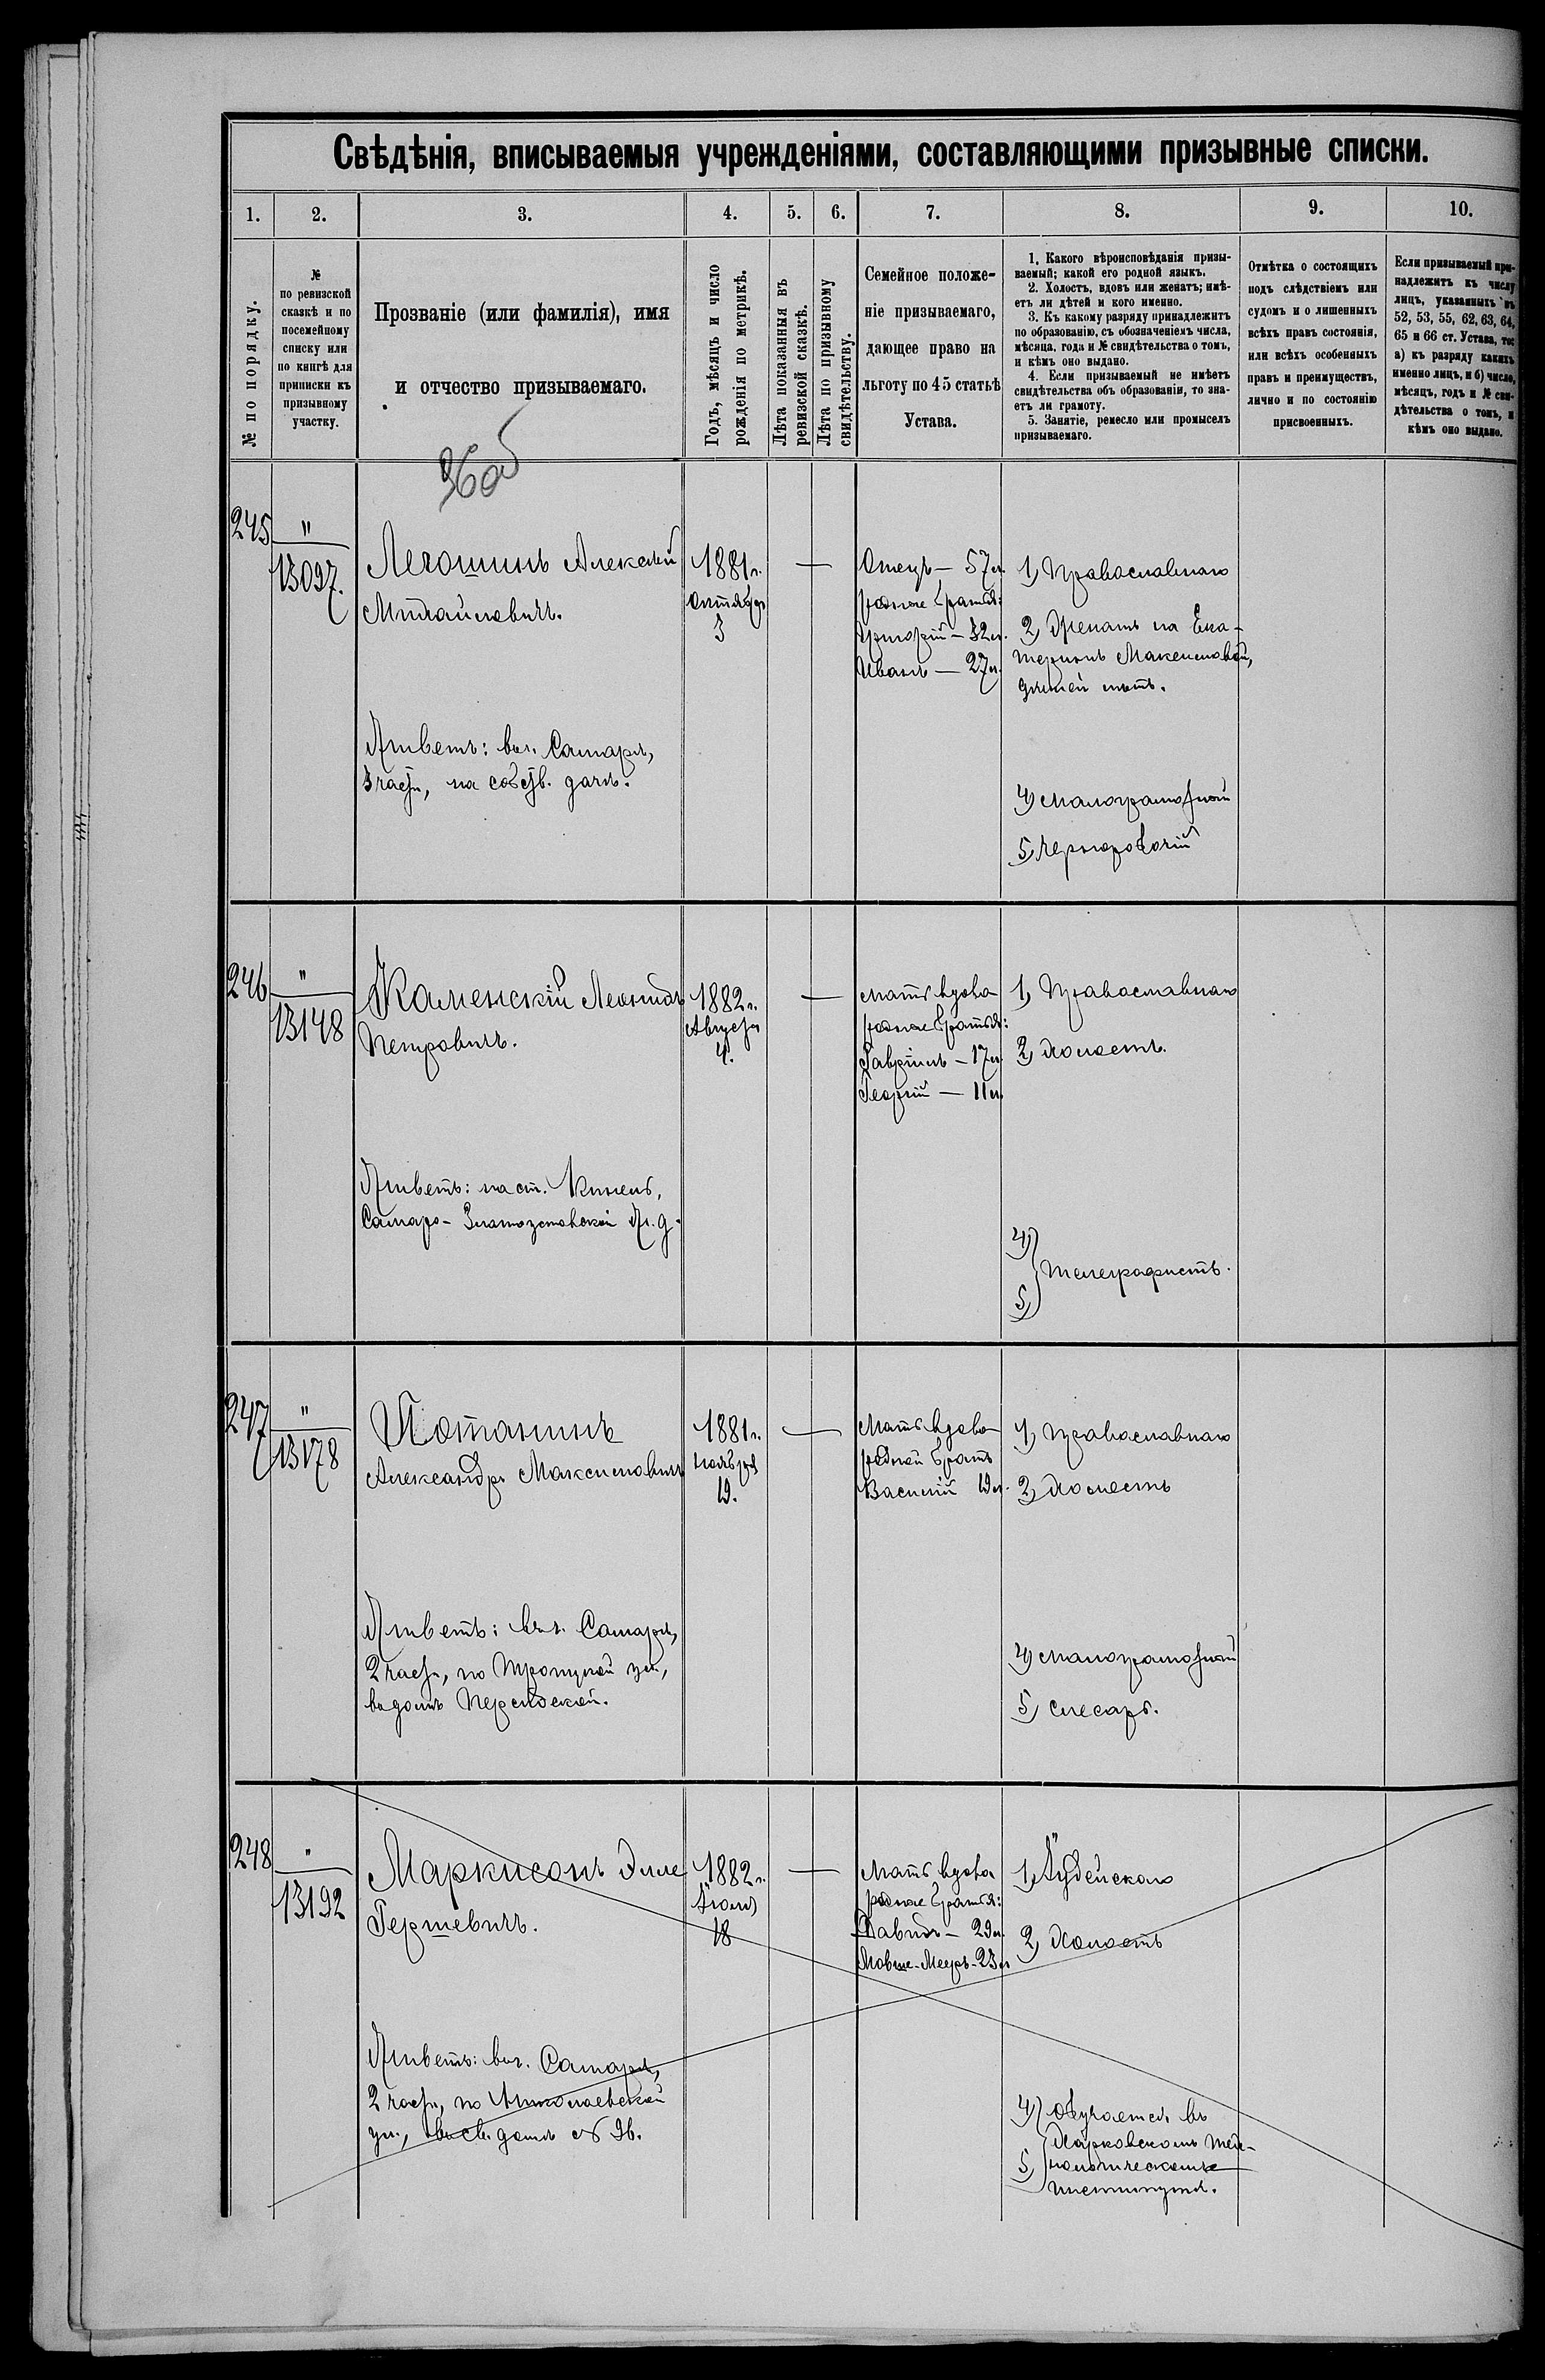 Свѣдѣнія, вписываемыя учрежденіями, составляющими призывные списки.
1. 2. 3. 4. 5. 6. 7. 8. 9. 10.
№ по порядку.
№
по ревизской
сказкѣ и по
посемейному
списку или
по книгѣ для
приписки къ
призывному
участку.
Прозваніе (или фамилія), имя
и отчество призываемаго.
Годъ, мѣсяцъ и число
рожденія по метрикѣ.
Лѣта показанныя въ
ревизской сказкѣ.
Лѣта по призывному
свидѣтельству.
Семейное положе-
ніе призываемаго,
дающее право на
льготу по 45 статьѣ
Устава.
1. Какого вѣроисповѣданія призы-
ваемый; какой его родной языкъ.
2. Холостъ, вдовъ или женатъ; имѣ-
етъ ли дѣтей и кого именно.
3. Къ какому разряду принадлежитъ
по образованію, съ обозначеніемъ числа,
мѣсяца, года и № свидѣтельства о томъ,
и кѣмъ оно выдано.
4. Если призываемый не имѣетъ
свидѣтельства объ образованіи, то зна-
етъ ли грамоту.
5. Занятіе, ремесло или промыселъ
призываемаго.
Отмѣтка о состоящихъ
подъ слѣдствіемъ или
судомъ и о лишенныхъ
всѣхъ правъ состоянія,
или всѣхъ особенныхъ
правъ и преимуществъ,
лично и по состоянію
присвоенныхъ.
Если призываемый при-
надлежитъ къ числу
лицъ, указанныхъ въ
52, 53, 55, 62, 63, 64,
65 и 66 ст. Устава, то:
а) къ разряду какихъ
именно лицъ, и б) число,
мѣсяцъ, годъ и № сви-
дѣтельства о томъ, и
кѣмъ оно выдано.
36об
245
"
13097.
Легошинъ Алексѣй
Михайловичъ.
Живетъ: въ г. Самарѣ,
3 части, на собств. дачѣ.
1881 г.
Октября
3
—
Отецъ — 57 л.
родные братья:
Григорій — 32 л.
Иванъ — 27 л.
1) Православнаго
2) Женатъ на Ека-
теринѣ Максимовой,
дѣтей нѣтъ.
4) малограмотный
5) чернорабочій
246
"
13148
Каменскій Леонидъ
Петровичъ.
Живетъ: на ст. Кинель,
Самаро-Златоустовской ж. д.
1882 г.
Августа
4.
—
мать вдова
родные братья:
Гавріилъ — 17 л.
Георгій — 11 л.
1) Православнаго
2) Холостъ.
4)
5)
телеграфистъ.
247
"
13178
Потанинъ
Александръ Максимовичъ
Живетъ: въ г. Самарѣ,
2 части, по Троицкой ул.,
въ домѣ
1881 г.
ноября
19.
—
мать вдова
родной братъ
Василій 19 л.
1) Православнаго
2) Холостъ
4) малограмотный
5) слесарь.
248
"
13192
Маркисонъ Элле
Гершевичъ.
Живетъ: въ г. Самарѣ,
2 части, по Николаевской
ул., въ св. домѣ № 96.
1882 г.
Іюля
18
—
мать вдова
родные братья:
Давидъ — 29 л.
Мовше-Мееръ - 23 л
1) Іудейскаго
2) Холостъ
4)
5)
обучается въ
Харьковскомъ тех-
нологическомъ
институтѣ.